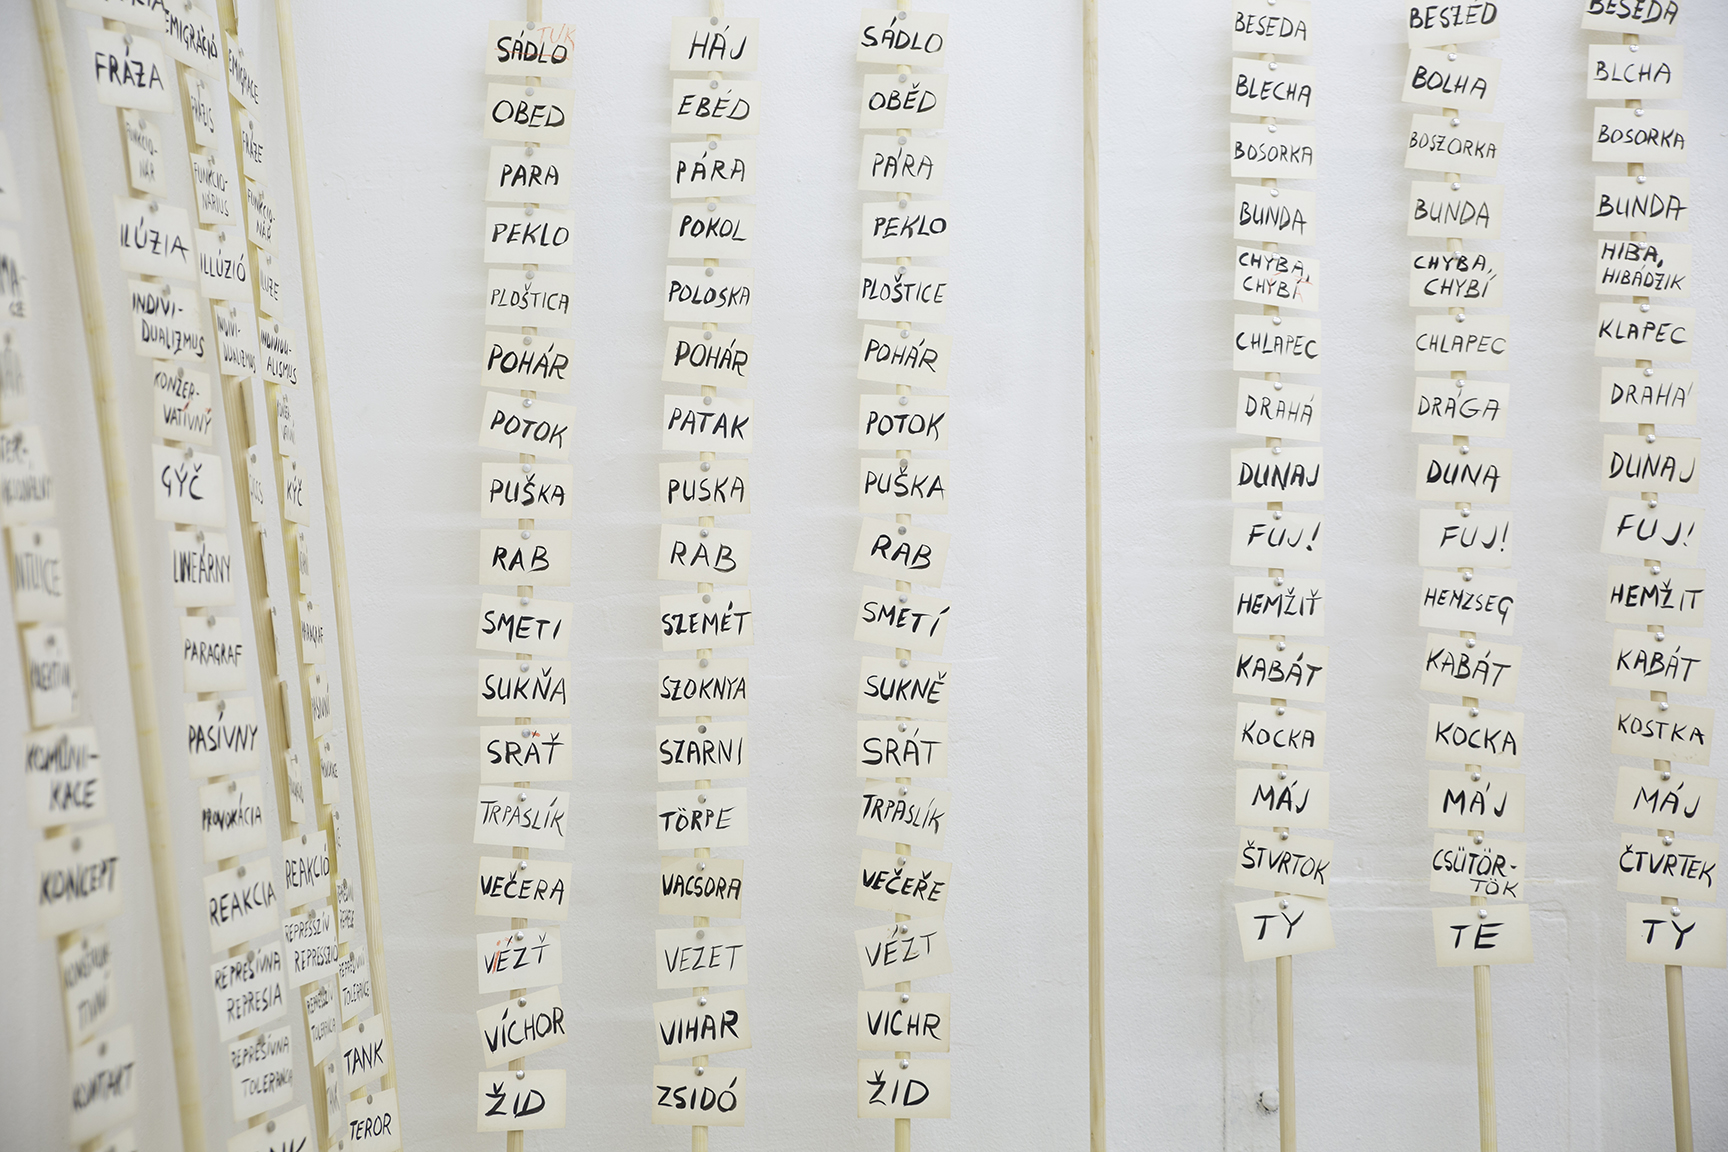 FRÁZA
FUNKCIO-
NÁR
ILÚZIA
INDIVI-
DUALIZMUS
KONZER-
VATÍVNÝ
GÝČ
LINEÁRNY
PARAGRAF
PASÍVNY
PROVOKÁCIA
REAKCIA
REPRESÍVNA
REPRESIA
REPRESÍVNA
TOLERANCIA
EMIGRÁCIÓ
FRÁZIS
FUNKCIO-
NÁRIUS
ILLÚZIÓ
INDIVI-
DUALIZMUS
REAKCIÓ
REPRESSZÍV
REPRESSZIÓ
EMIGRACE
FRÁZE
FUNKCIO-
NÁŘ
ILUZE
INDIVIDU-
ALISMUS
KÝČ
PARAGRAF
TANK
TEROR
KOMUNI-
KACE
KONCEPT
KONTAKT
TUK
SÁDLO
OBED
PARA
PEKLO
PLOŠTICA
POHÁR
POTOK
PUŠKA
RAB
SMETI
SUKŇA
SRAŤ
TRPASLÍK
VEČERA
VÉZŤ
VÍCHOR
ŽID
HÁJ
EBÉD
PÁRA
POKOL
POLOSKA
POHÁR
PATAK
PUSKA
RAB
SZEMÉT
SZOKNYA
SZARNI
TÖRPE
VACSORA
VEZET
VIHAR
ZSIDÓ
SÁDLO
OBĚD
PÁRA
PEKLO
PLOŠTICE
POHÁR
POTOK
PUŠKA
RAB
SMETÍ
SUKNĚ
SRÁT
TRPASLÍK
VEČEŘE
VÉZT
VICHR
ŽID
BESEDA
BLECHA
BOSORKA
BUNDA
CHYBA,
CHYBÍ
CHLAPEC
DRAHÁ
DUNAJ
FUJ!
HEMŽIŤ
KABÁT
KOCKA
MÁJ
ŠTVRTOK
TY
BESZÉD
BOLHA
BOSZORKA
BUNDA
CHYBA,
CHYBÍ
CHLAPEC
DRÁGA
DUNA
FUJ!
HEMZSEG
KABÁT
KOCKA
MÁJ
CSÜTÖR-
TÖK
TE
BESEDA
BLCHA
BOSORKA
BUNDA
HIBA,
HIBÁDZIK
KLAPEC
DRAHÁ
DUNAJ
FUJ!
HEMŽIT
KABÁT
KOSTKA
MÁJ
ČTVRTEK
TY